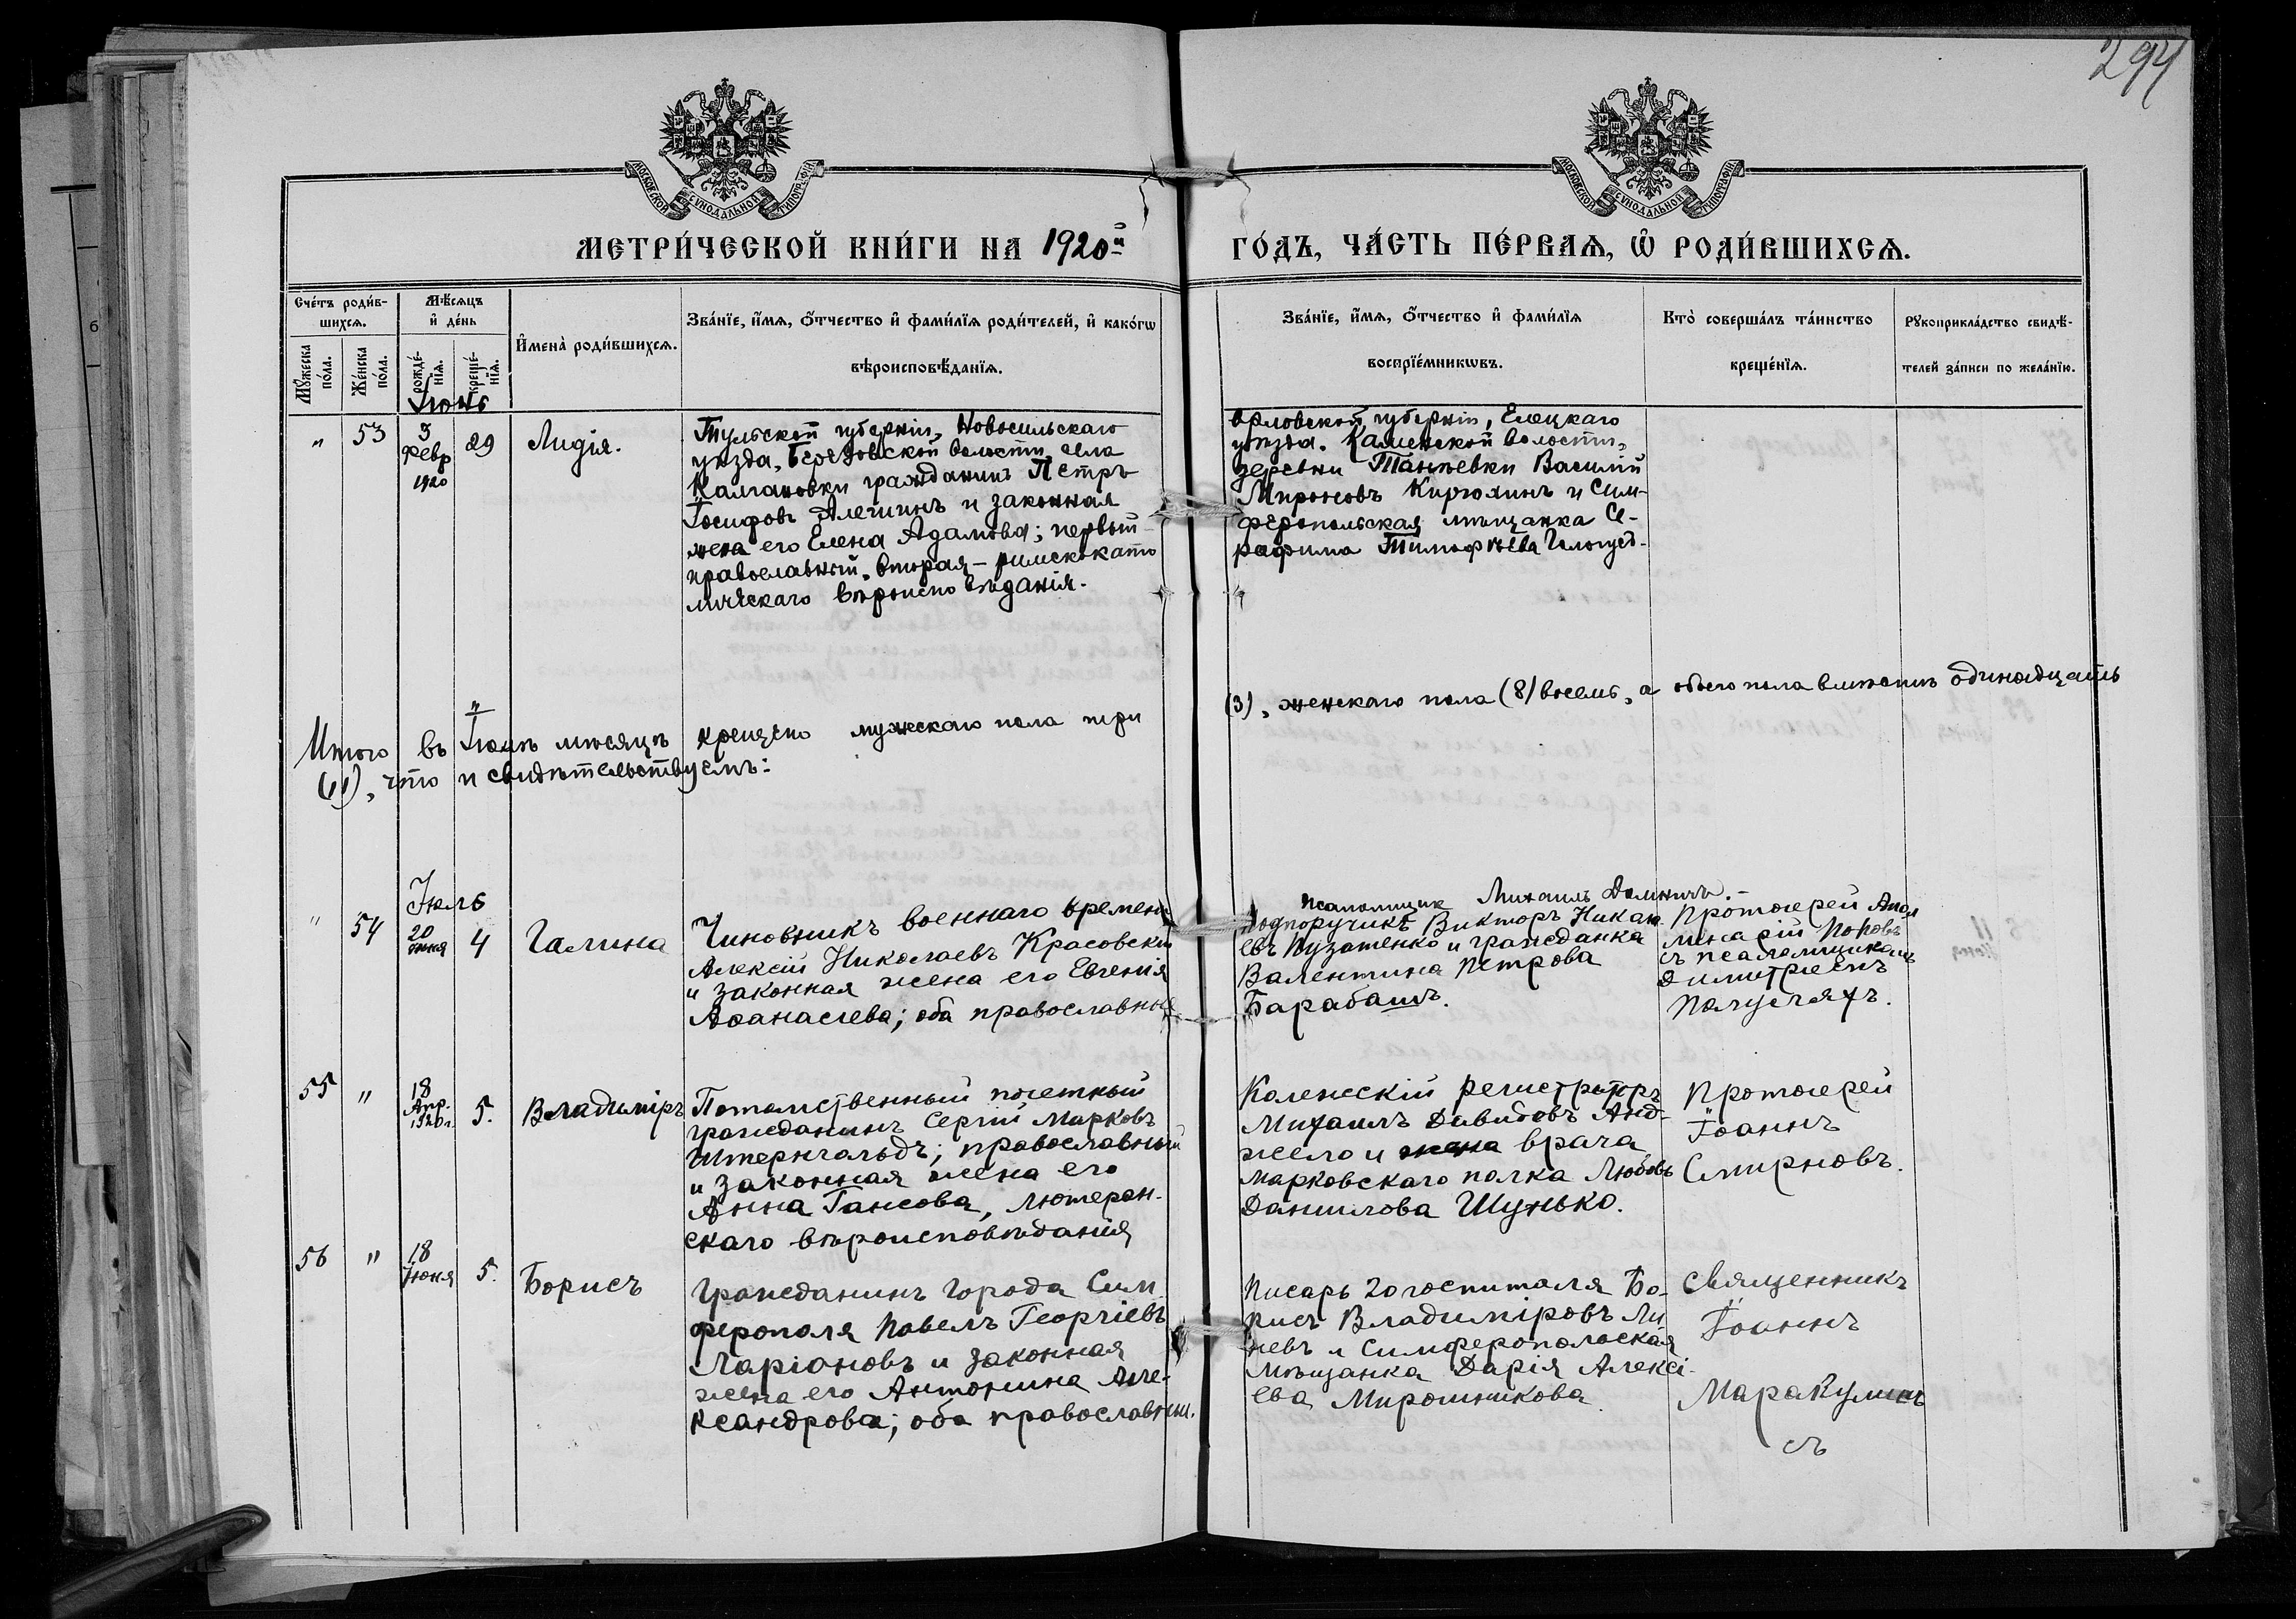 294
МОСКОВСКОЙ СѴНОДАЛЬНОЙ ТИПОГРАФІИ
МОСКОВСКОЙ СѴНОДАЛЬНОЙ ТИПОГРАФІИ
МЕТРИ́ЧЕСКОЙ КНИ́ГИ НА 1920й
ГО́ДЪ, ЧА́СТЬ ПЕ́РВАѦ, Ѿ РОДИ́ВШИХСѦ.
Сче́тъ роди́в-
шихсѧ.
Мѣ́сѧцъ
и҆ де́нь
Мꙋ́жеска по́ла.
Же́нска по́ла.
рожде́-нїѧ.
креще́-нїѧ.
И҆мена̀ роди́вшихсѧ.
Зва́нїе, и҆́мѧ, ѻ҆́тчество и҆ фами́лїѧ роди́телей, и҆ како́гѡ
вѣроисповѣ́данїѧ.
Зва́нїе, и҆́мѧ, ѻ҆́тчество и҆ фами́лїѧ
воспрїе́мникѡвъ.
Кто̀ соверша́лъ та́инство
креще́нїѧ.
Рꙋкоприкла́дство свидѣ́-
телей за́писи по жела́нїю.
Іюнь
" 53 3 Февр 1920 29 Лидія.
Тульской губерніи, Новосильскаго
уѣзда, Березовской волости, села
Калгановки гражданинъ Петръ
Іосифовъ Алешинъ и законная
жена его Елена Адамова; первый
православный, вторая – римскокато
лическаго вѣроисповѣданія.
Орловской губерніи, Елецкаго
уѣзда, Каменской волости,
деревни Танѣевки Василій
Мироновъ Кирюхинъ и Сим-
феропольская мѣщанка Се-
рафима Тимофѣева
Итого въ Іюнѣ мѣсяцѣ крещено мужскаго пола три
(3), женскаго пола (8) восемь, а обоего пола вмѣстѣ одинадцать
(11), что и свидѣтельствуемъ:
Іюль
" 54 20 іюня 4 Галина
Чиновникъ военнаго времени
Алексій Николаевъ Красовскій
и законная жена его Евгенія
Аѳанасіева; оба православные
псаломщик Михаилъ
Подпоручикъ Викторъ
евъ Пузатенко и гражданка
Валентина Петрова
Барабашъ.
Протоіерей Апол
линарій Поповъ
съ псаломщикомъ
Димитріемъ
55 " 18 Апр. 1920 г. 5. Владиміръ
Потомственный почетный
гражданинъ Сергій Марковъ
Штернгальдъ; православный
и законная жена его
Анна Гансова, лютеран-
скаго вѣроисповѣданія
Колежскій регистраторъ
Михаилъ Давидовъ Анд-
жело и жена врача
Марковскаго полка Любовь
Даниилова Шунько.
Протоіерей
Іоаннъ
Смирновъ.
56 " 18 Іюня 5. Борисъ
Гражданинъ города Сим
ферополя Павелъ Георгіевъ
Ларіоновъ и законная
жена его Антонина Але-
ксандрова; оба православные.
Писарь 20 госпиталя Бо-
рисъ Владиміровъ Ли
невъ и Симферопольская
мѣщанка Дарія Алексі-
ева Мирошникова.
Священникъ
Іоаннъ
Маракулинъ
съ